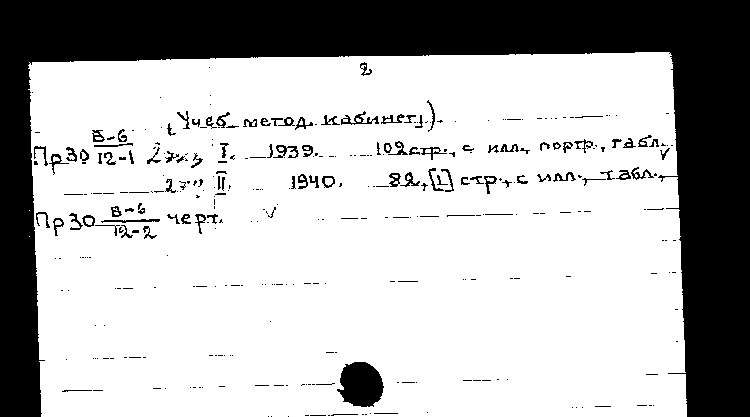 2
(Учеб. метод. кабинет).
Пр30 В-6/12-1 2экз I. 1939. 102стр., с илл., портр., табл.
2экз II. 1940. 82, [1] стр., с илл., табл.,
Пр30 В-6/12-2 черт. ✓